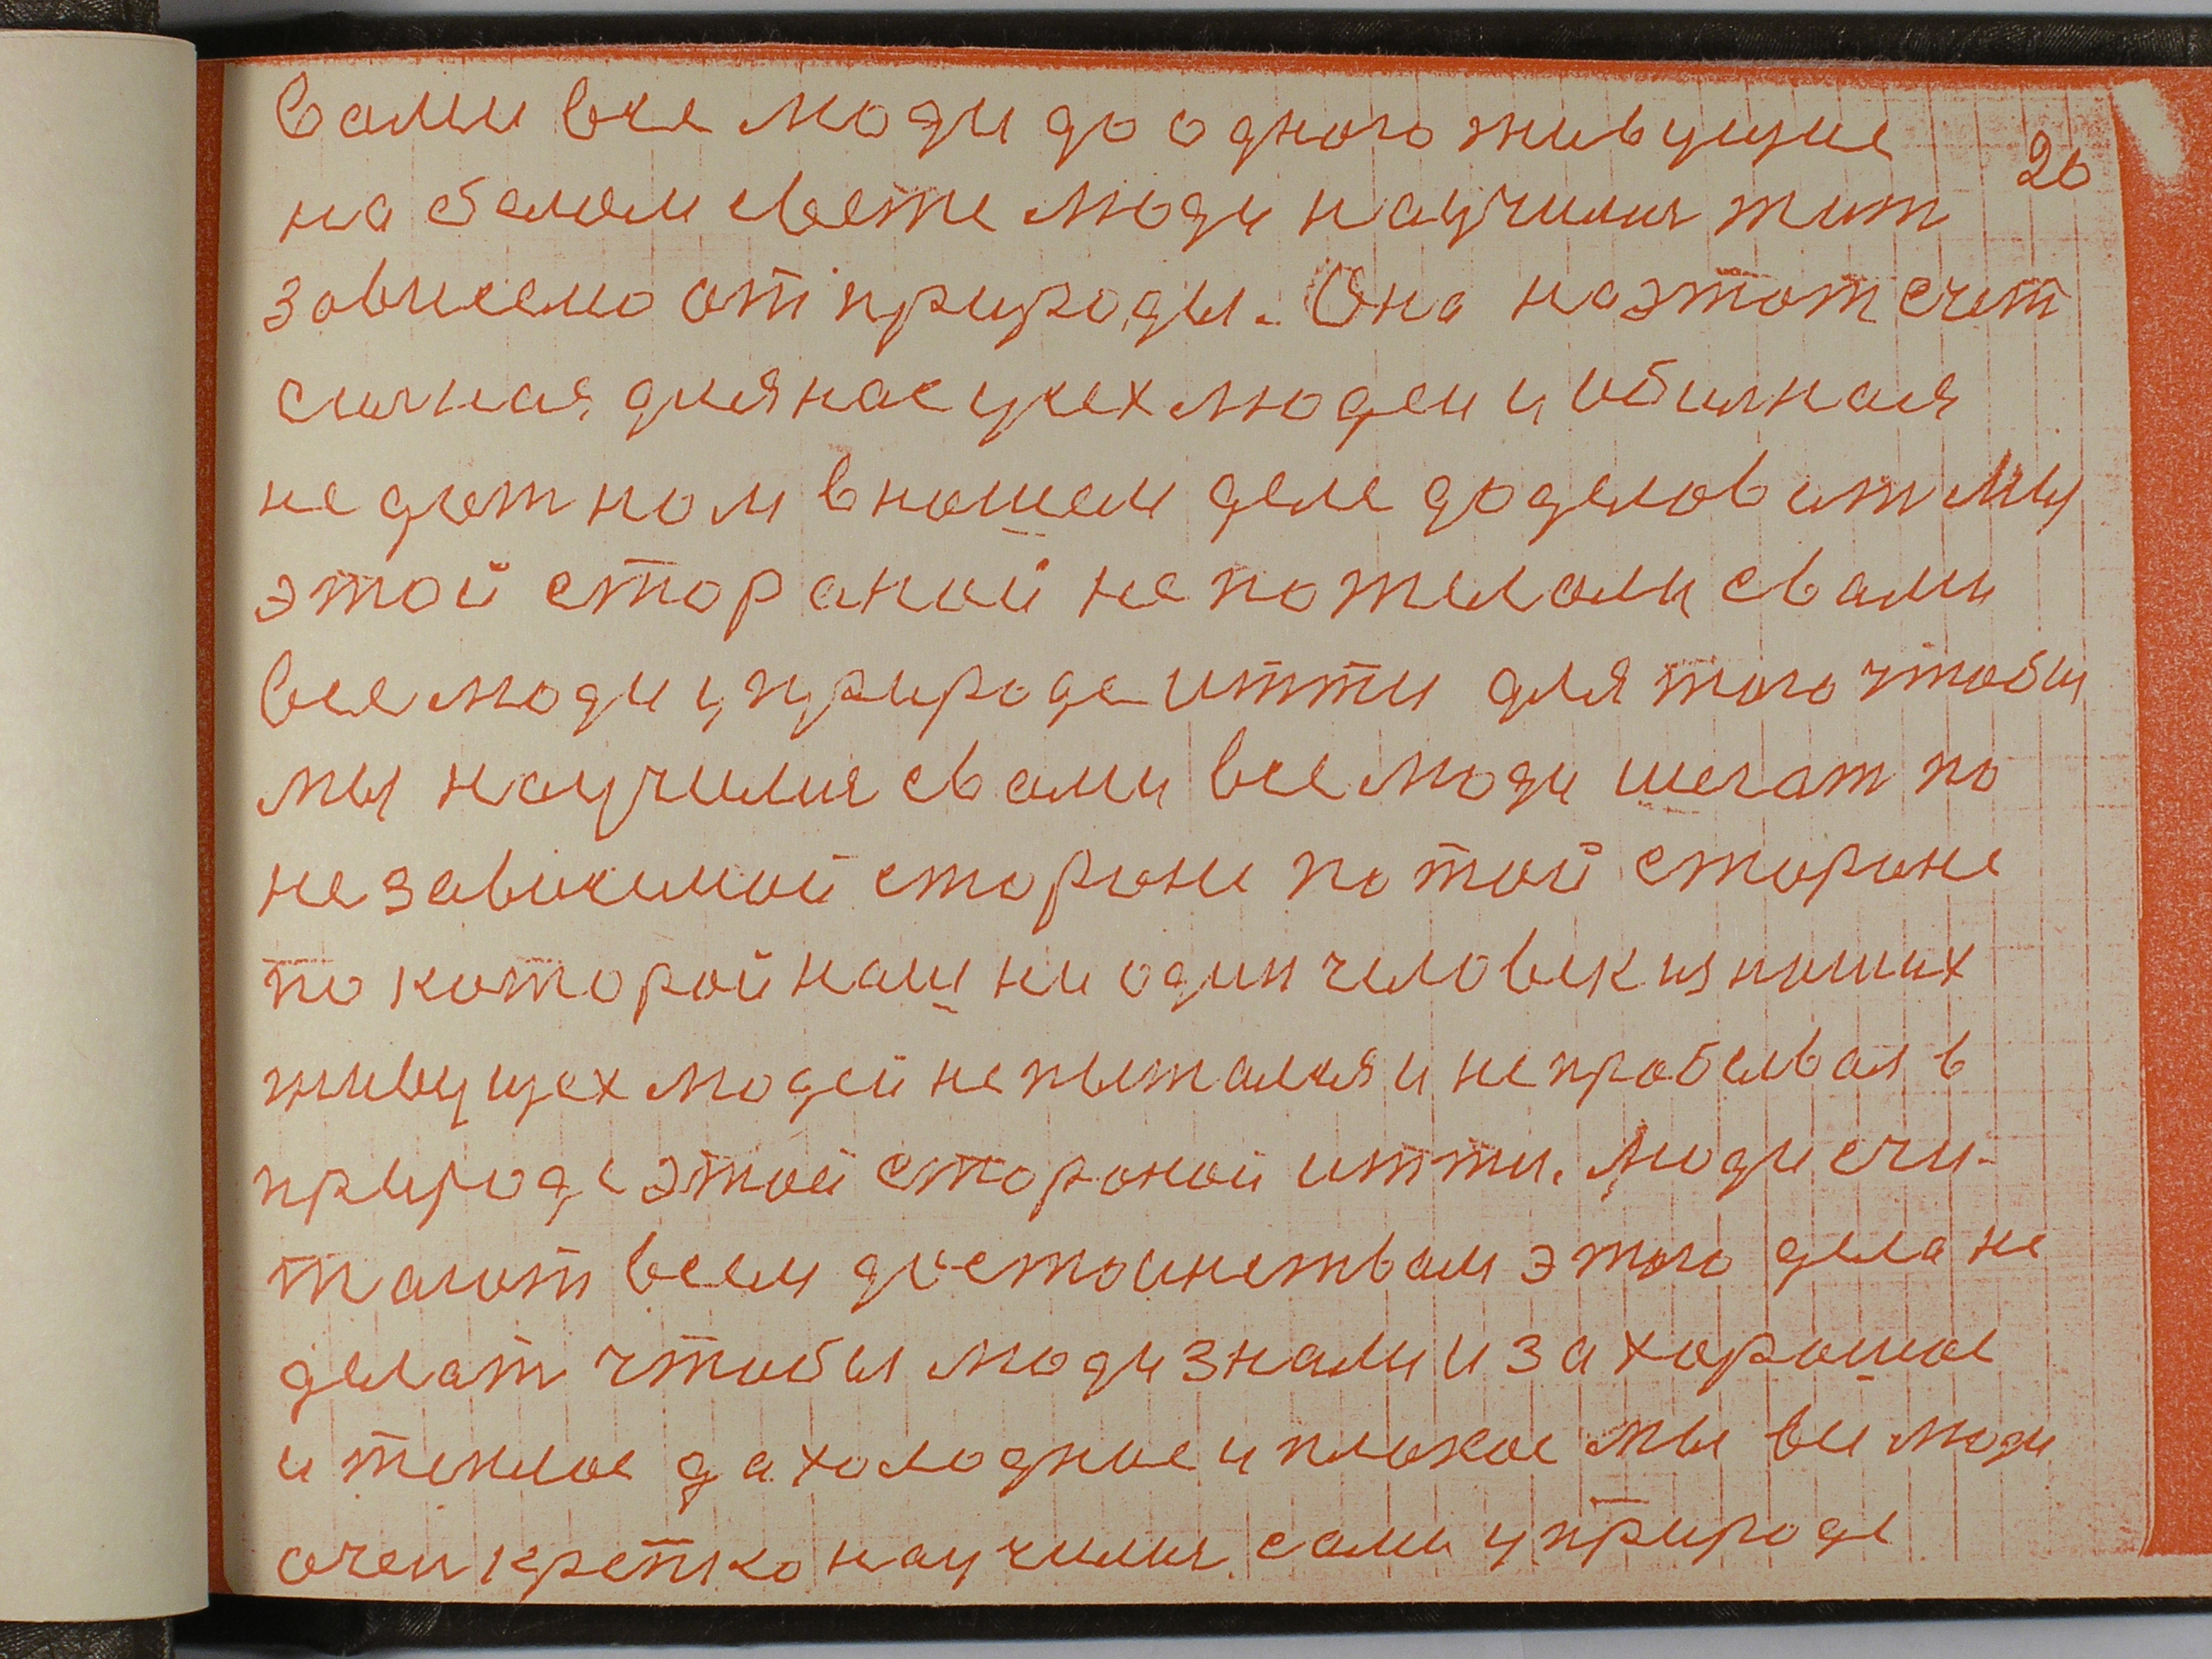 вами все люди до одного живущие
20
на белом свете люди научилися жит
зависемо от природы. Она на этот счет
силная для нас усех людеи и обилная
не дают нам в нашем деле доделовит мы
этой стораной не пожелали с вами
все люди у природе итти для того чтобы
мы научилися с вами все люди шегат по
не зависимой стороне по той стороне
по которой наш ни один человек из наших
живущех людей не пытался и не пробывал в
природе этой стороной итти. Люди счи-
тают всем достоинствам этого дела не
делат чтобы люди знали и за хорошое
и теплое да холодное и плохое мы все люди
очен крепко научилися сами у природе